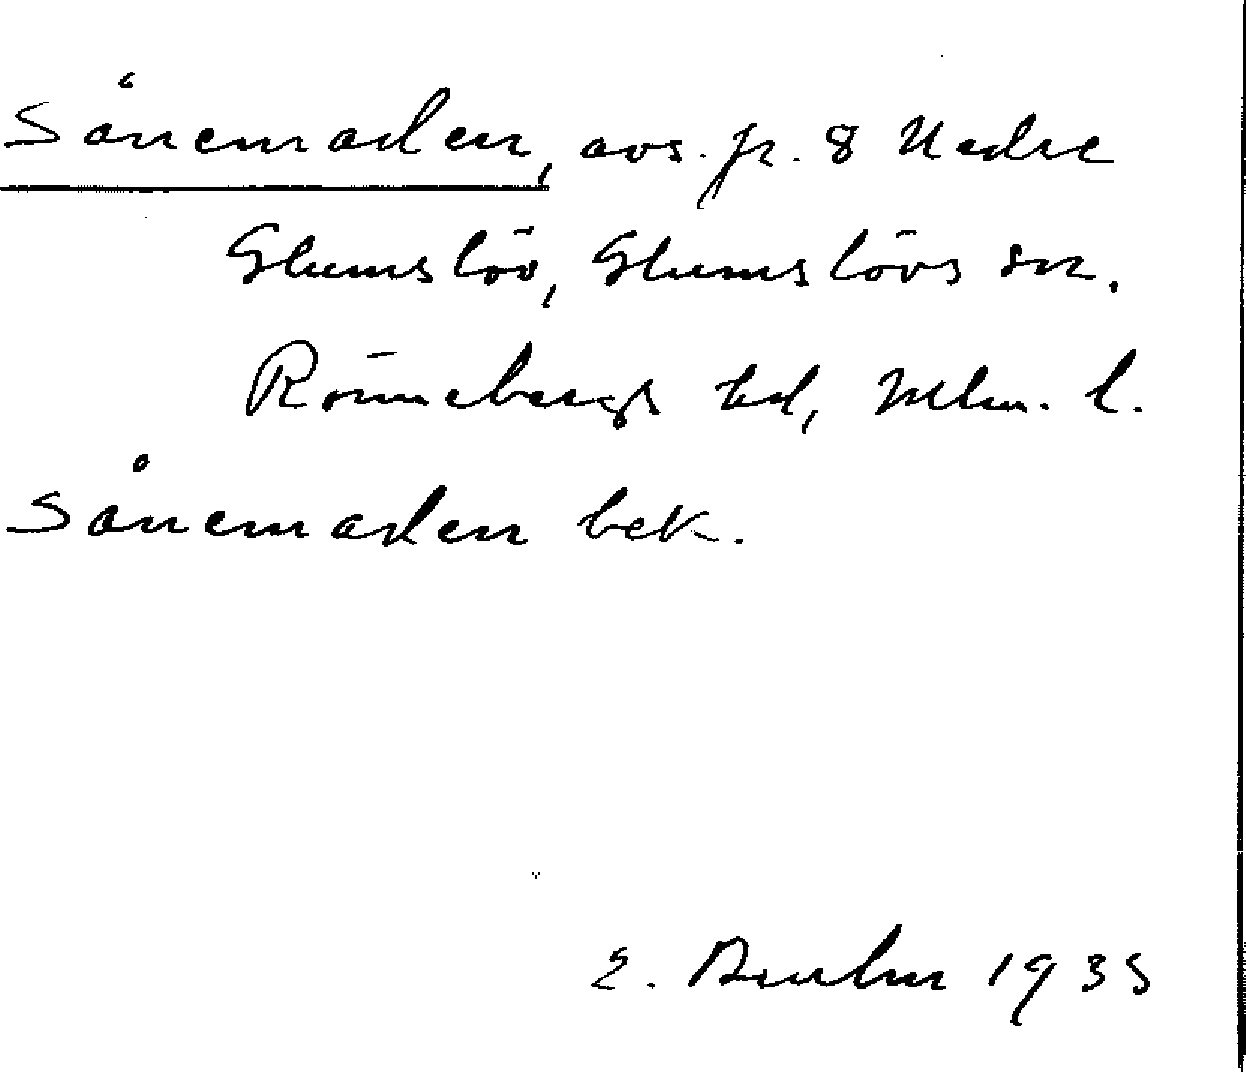 Sånemaden, avs. fr. 8 Nedre
Glumslöv, Glumslövs sn.
Rönnebergs hd, Mlm. l.
Sånemaden bek.
E. 1935